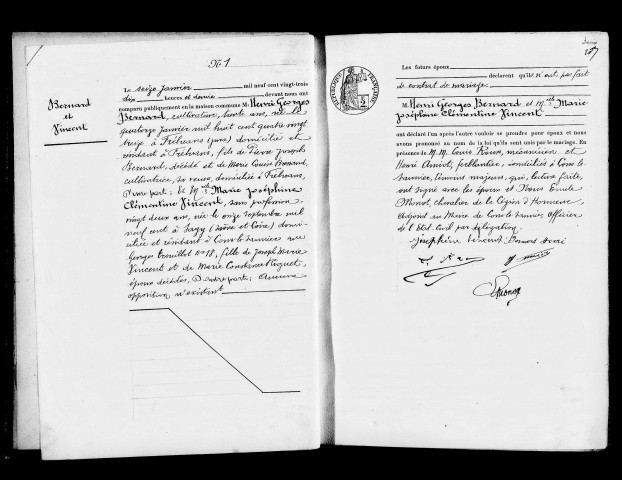 N° 1
Bernard
et
Vincent
Le seize janvier mil neuf cent vingt-trois
dix heures et demie devant nous ont
comparu publiquement en la maison commune M. Henri Georges
Bernard, cultivateur, trente ans, né le
quatorze janvier mil huit cent quatre vingt
treize à Fréhans (Jura) domicilié et
résidant à Fréhans, fils de Pierre Joseph
Bernard, décédé et de Marie Louise
cultivatrice, sa veuve, domiciliée à Fréhans,
D'une part; Et Mlle Marie Joséphine
Clémentine Vincent, sans profession
vingt deux ans, née le onze septembre mil
neuf cent à Sagy (Saône et Loire) domi-
ciliée et résidant à Lons-le-Saunier rue
Georges Trouillot n° 18, fille de Joseph Marie
Vincent et de Marie Constance
époux décédés, D'autre part; Aucune
opposition n'existant
deux
Les futurs époux
déclarent qu'ils n'ont pas fait
de contrat de mariage.
RÉPUBLIQUE FRANÇAISE
M. Henri Georges Bernard et Mlle Marie
Joséphine Clémentine Vincent
ont déclaré l'un après l'autre vouloir se prendre pour époux et nous
avons prononcé au nom de la loi qu'ils sont unis par le mariage. En
présence de M.M. Louis Roux, mécanicien et
Henri Amiot, ferblantier, domiciliés à Lons-le-
Saunier, témoins majeurs, qui, lecture faite,
ont signé avec les époux et Nous Emile
Monot, chevalier de la Légion d'Honneur,
Adjoint au Maire de Lons-le-Saunier, officier
de l'Etat-Civil par délégation.
Joséphine Vincent Bernard Henri
Monot